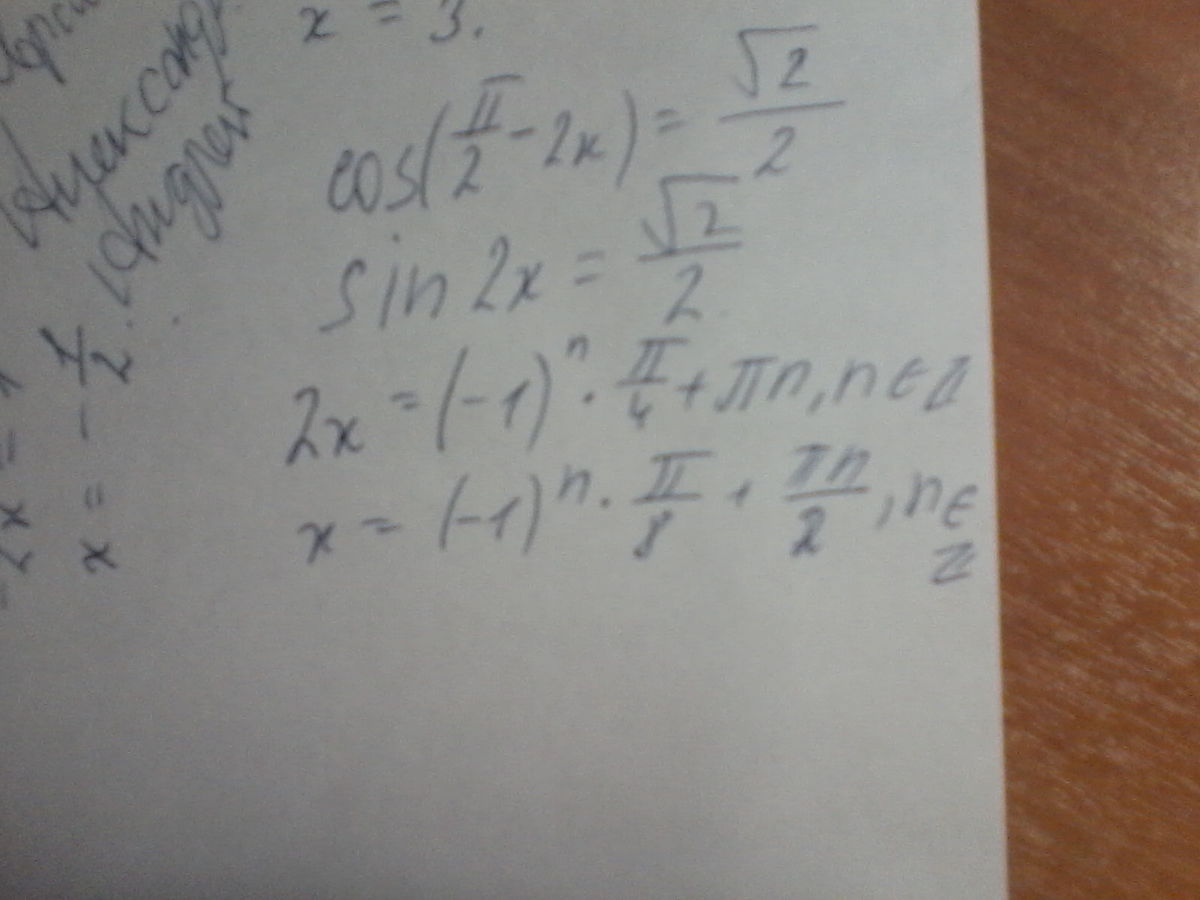 x = 3.
cos(π/2 - 2x) = √2/2
sin 2x = √2/2
2x = (-1)^n · π/4 + πn, n ∈ Z
x = (-1)^n · π/8 + πn/2, n ∈
Z
Андрей
x = - 1/2.